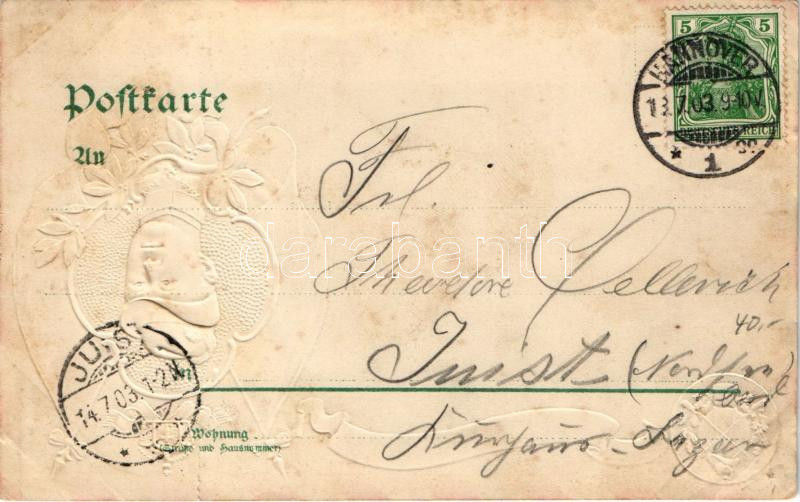 5 5
HANNOVER
13.7.03. 9-10V.
* 1
REICH
Postkarte
An
Frl.
Theodore
Juist (Nordsee)
40.-
JUIST
14.7.03. 1-2N
*
Wohnung
(Straße und Hausnummer)
Kurhaus
darabanth